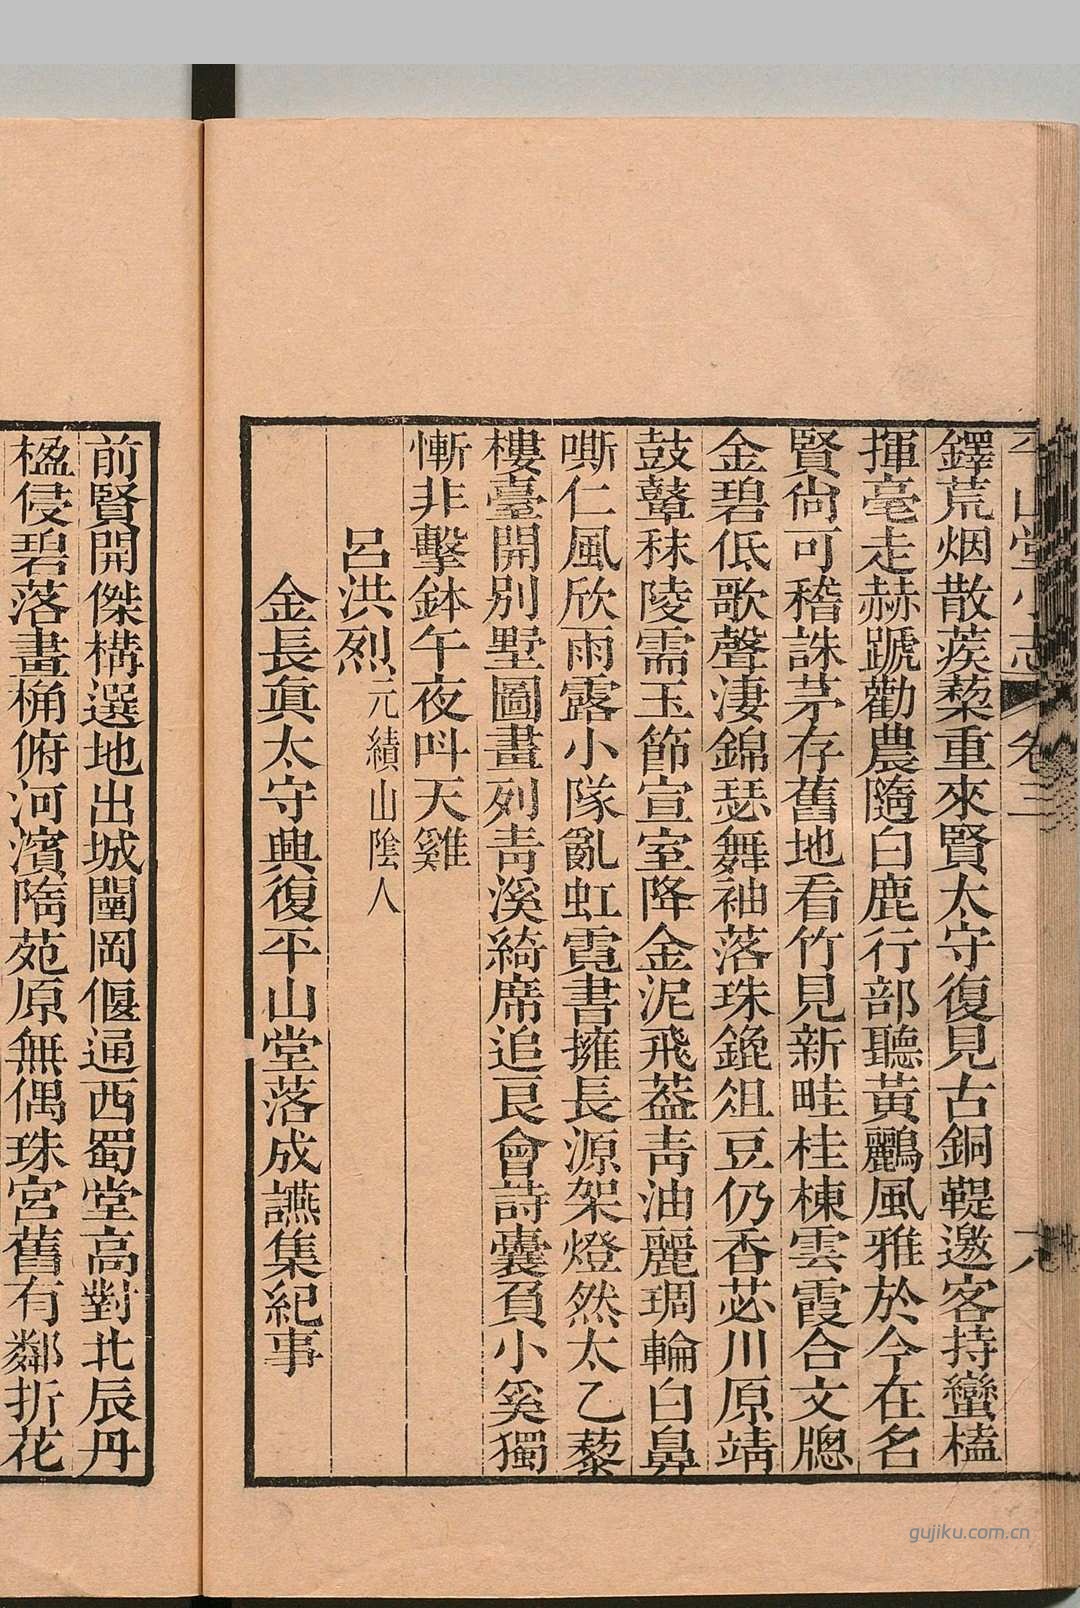 平山堂小志 卷三 六
鐸荒烟散蒺蔾重來賢太守復見古銅鞮邀客持蠻榼
揮毫走赫蹏勸農隨白鹿行部聽黃鸝風雅於今在名
賢尚可稽誅茅存舊地看竹見新畦桂棟雲霞合文牕
金碧低歌聲淒錦瑟舞袖落珠鎞俎豆仍香苾川原靖
鼓鼙秣陵需玉節宣室降金泥飛葢靑油麗琱輪白鼻
嘶仁風欣雨露小隊亂虹霓書擁長源架燈然太乙藜
樓臺開別墅圖畫列靑溪綺席追良會詩囊負小奚獨
慚非擊鉢午夜呌天雞
呂洪烈元績山陰人
金長眞太守興復平山堂落成讌集紀事
前賢開傑構選地出城闉岡偃通西蜀堂高對北辰丹
楹侵碧落畫桷俯河濱隋苑原無偶珠宮舊有鄰折花
gujiku.com.cn